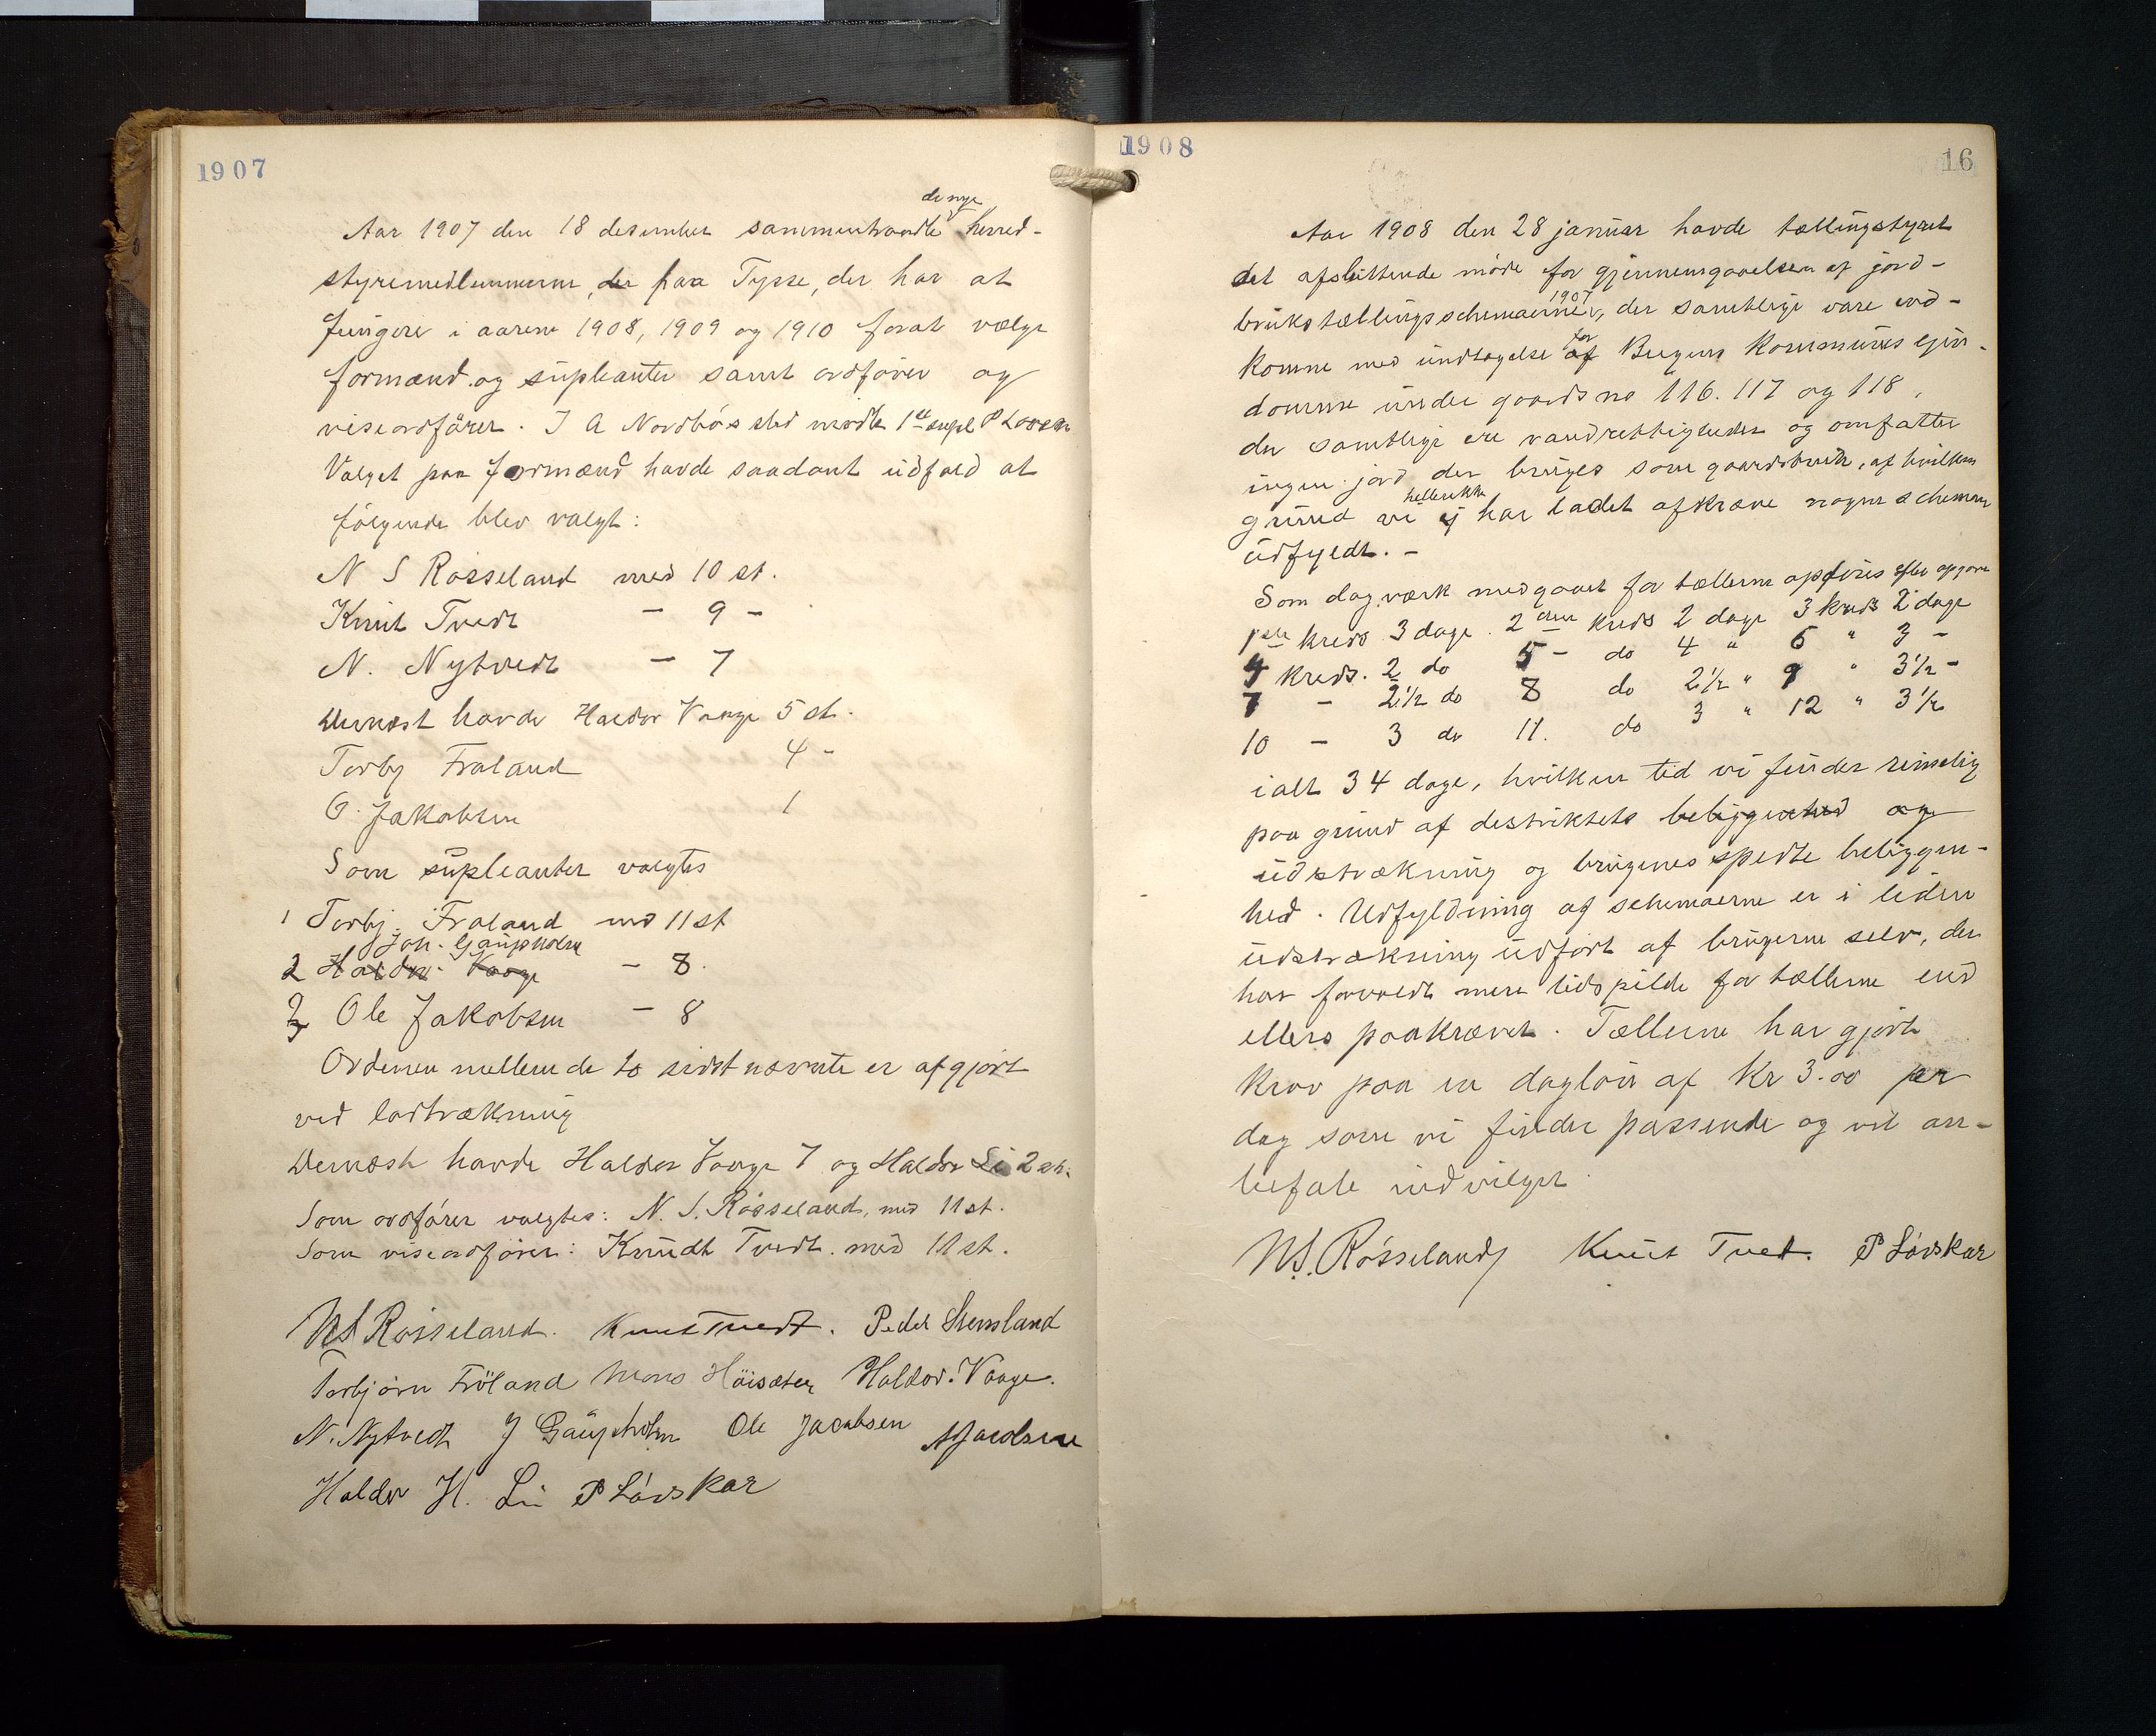 1907
de nye
Aar 1907 den 18 desember sammentraadte herred-
styremedlemmerne, der paa Tysse, der har at
fungere i aarene 1908, 1909 og 1910 forat vælge
formænd og supleanter samt ordfører og
viseordfører. I A Nordbøs sted mødte 1ste supl P Løvsk
Valget paa formænd havde saadant udfald at
følgende blev valgt:
N S Røsseland med 10 st.
Knut Tvedt - 9 -
N. Nytvedt - 7
Dernæst havde Haldor Vaage 5 st.
Torbj Frøland 4 -
O. Jakobsen 1
Som supleanter valgtes
1 Torbj. Frøland med 11 st
Joh. Gaupholm
2 Haldor Vaage - 8.
3 Ole Jakobsen - 8
Ordenen mellem de to sidstnævnte er afgjort
ved lodtrækning
Dernæst havde Haldor Vaage 7 og Haldor Li 2 st.
Som ordfører valgtes: N. S. Røsseland, med 11 st.
Som viseordfører: Knudt Tvedt. med 11 st.
NS Røsseland. Knut Tvedt. Peder Stensland
Torbjørn Fröland Mons Höisæter Haldor. Vaage.
N. Nytvedt J Gaupholm Ole Jacobsen AJacobsen
Haldor H. Li P Løvskar
1908
16
Aar 1908 den 28 januar havde tællingstyret
det afsluttende møde for gjennemgaaelsen af jord-
1907
brukstællingsschemaerne, der samtlige vare ind-
for
komne med undtagelse af Bergens Kommunes ejen-
domme under gaards no 116. 117 og 118,
der samtlige ere vandrettigheder og omfatter
ingen jord der bruges som gaardsbruk, af hvilken
heller ikke
grund vi ej har ladet afkræve nogen schemaer
udfyldt. -
Som dagværk medgaaet for tællerne opføres efter opgave
1ste kreds 3 dage. 2den kreds 2 dage 3 kreds 2 dage
4 kreds. 2 do 5 - do 4 " 6 " 3 -
7 - 2 1/2 do 8 do 2 1/2 " 9 " 3 1/2 -
10 - 3 do 11. do 3 " 12 " 3 1/2
ialt 34 dage, hvilken tid vi finder rimelig
paa grund af destriktets beliggenhed og
udstrækning og brugenes spredte beliggen-
hed. Udfyldning af schemaerne er i liden
udstrækning udført af brugerne selv, der
har forvoldt mere tidspilde for tællerne end
ellers paakrævet. Tællerne har gjort
krav paa en dagløn af Kr 3.00 per
dag som vi finder passende og vil an-
befale indvilget.
NS. Røsseland Knut Tvet. P Løvskar